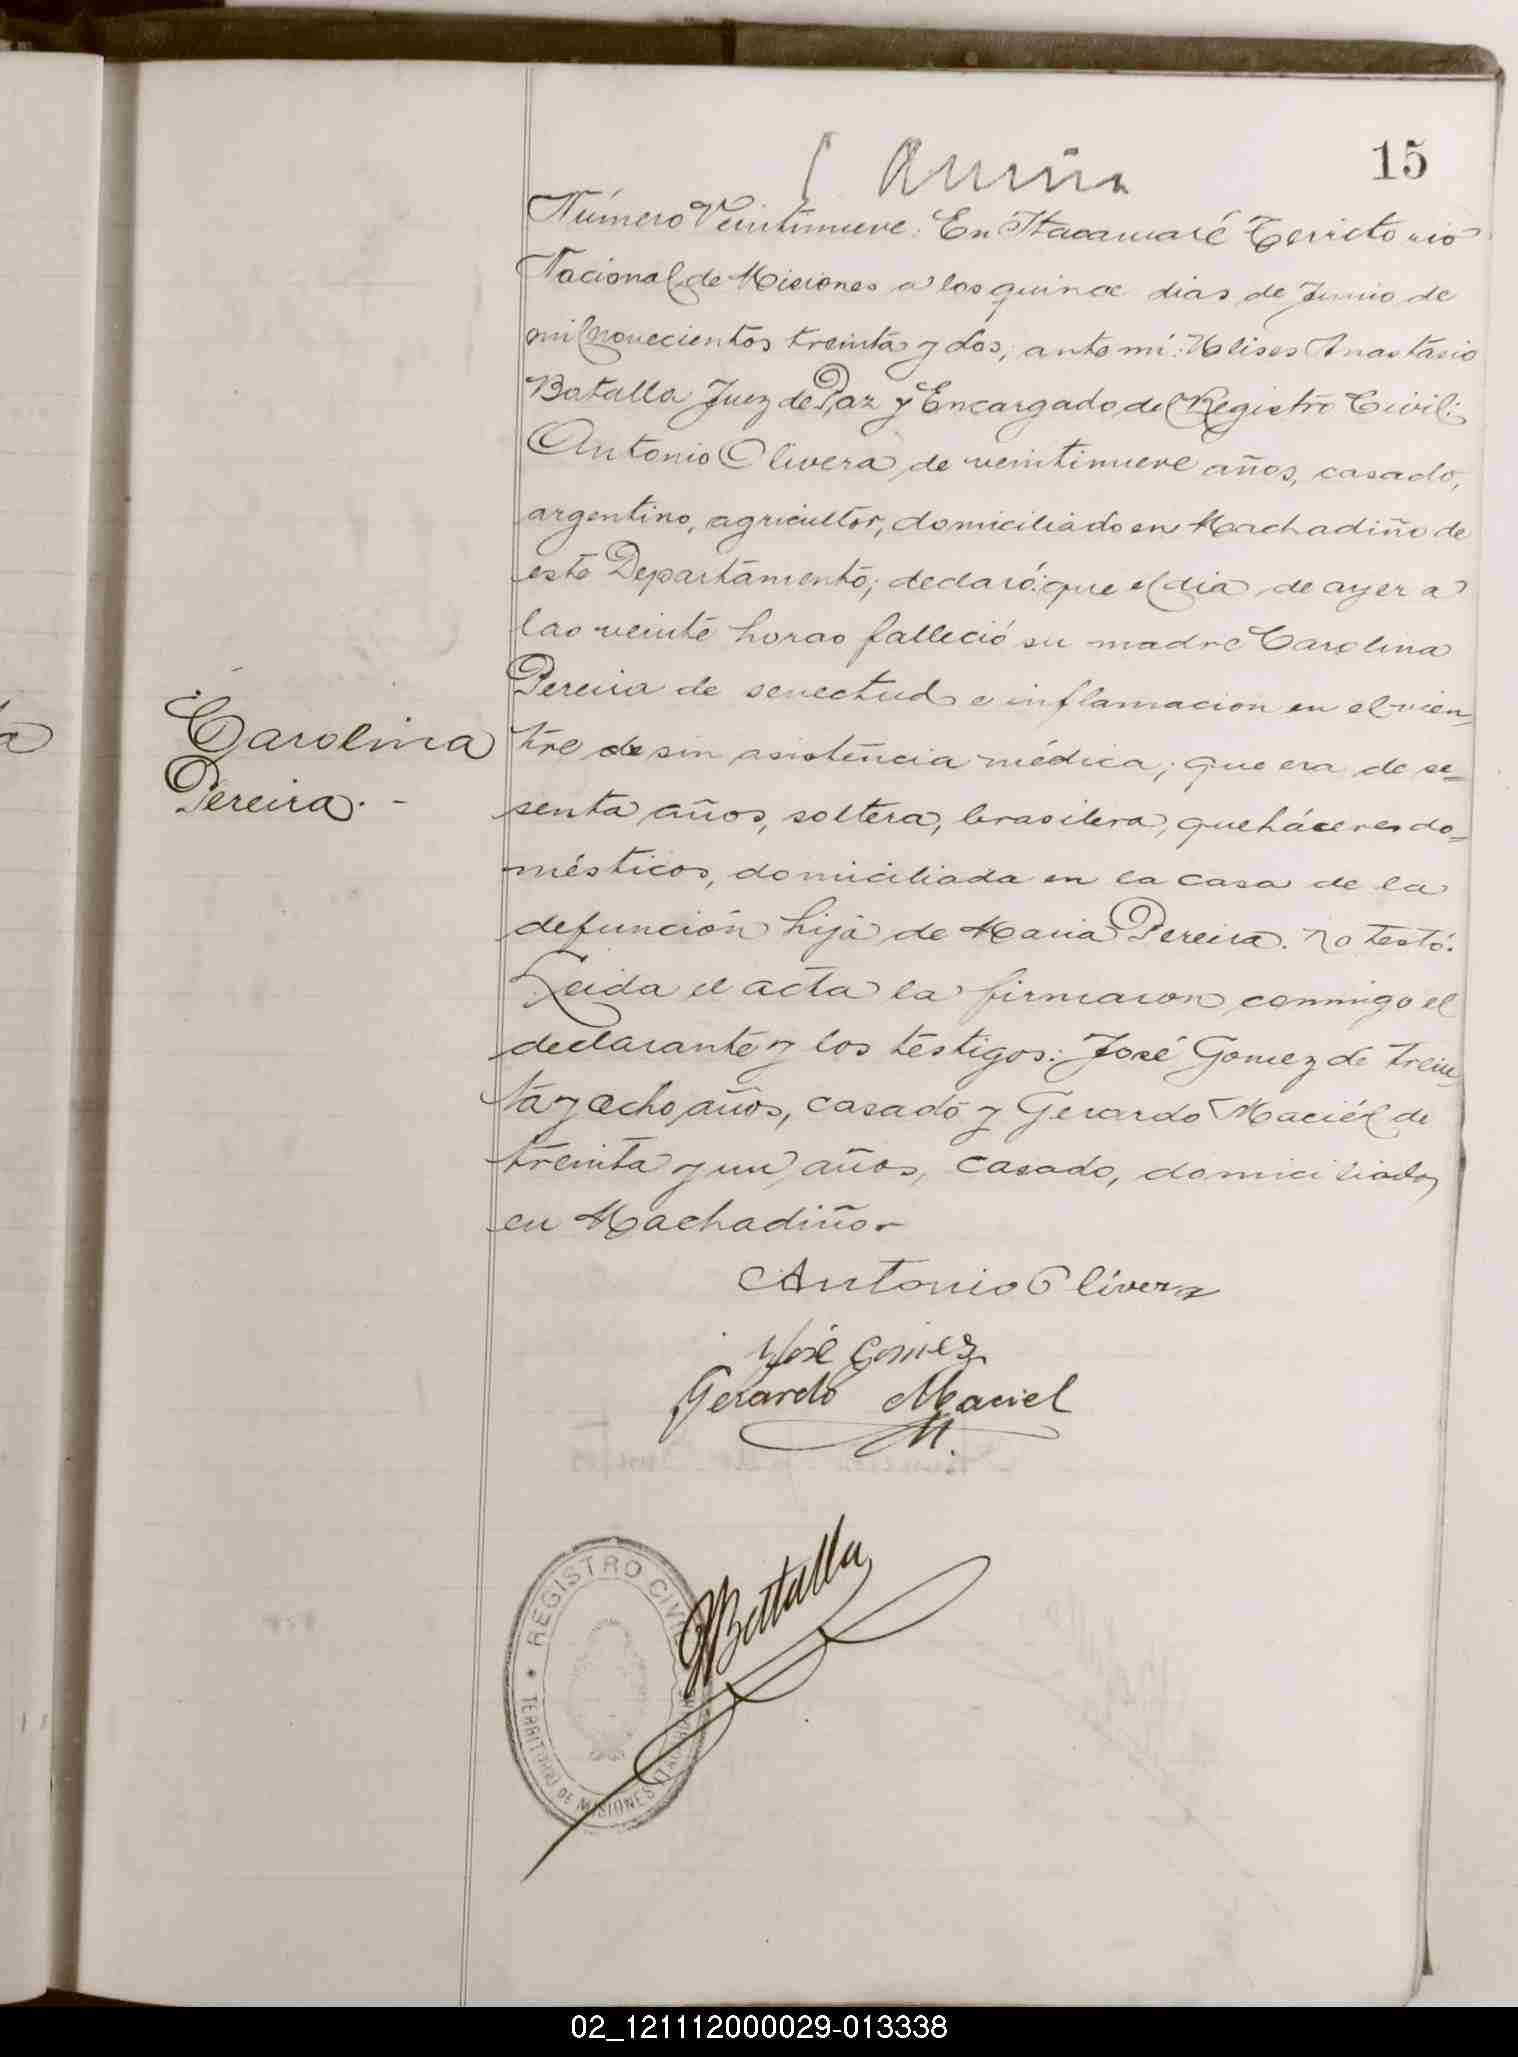 15
Número Veintinueve: En Itacaruaré Territorio
Nacional de Misiones a los quince dias de Junio de
mil novecientos treinta y dos, ante mi: Ulises Anastasio
Batalla Juez de Paz y Encargado del Registro Civil:
Antonio Olivera de veintinueve años, casado,
argentino, agricultor, domiciliado en Machadiño de
este Departamento; declaró: que el dia de ayer a
las veinte horas falleció su madre Carolina
Pereira de senectud e inflamacion en el vien
Carolina
Pereira. -
tre de sin asistencia médica; que era de se=
senta años, soltera, brasilera, quehaceres do=
mésticos, domiciliada en la casa de la
defunción hija de Maria Pereira. No testó.
Leida el acta la firmaron conmigo el
declarante y los testigos: José Gomez de trein
ta y ocho años, casado y Gerardo Maciél de
treinta y un años, casado, domiciliados
en Machadiño-
Antonio Olivera
José Gomez
Gerardo Maciel
M.
Batalla
REGISTRO CIVIL
TERRITORIO DE MISIONES
02_121112000029-013338